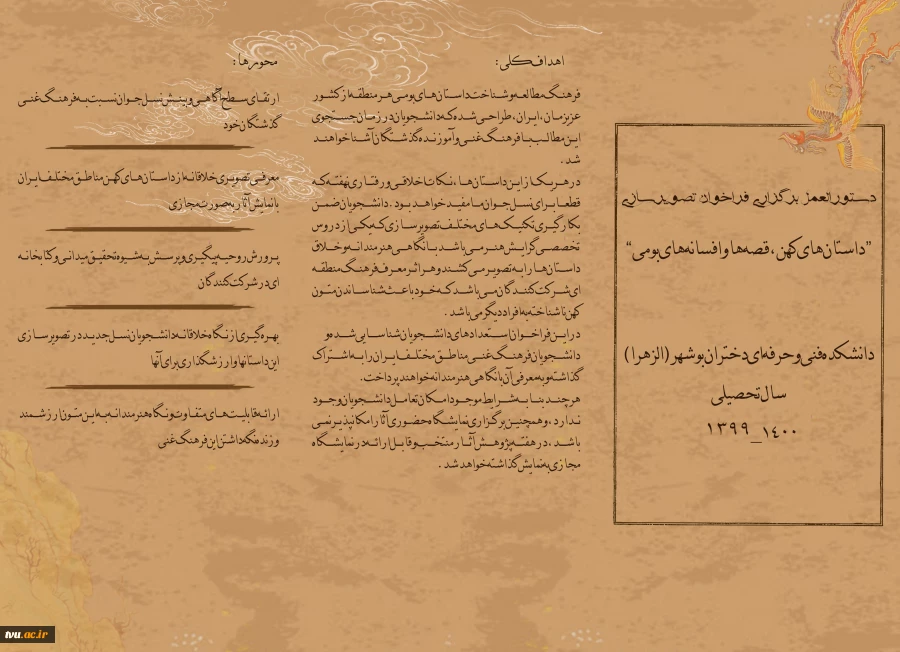 دستورالعمل برگزاری فراخوان تصویرسازی
”داستان‌های کهن، قصه‌ها و افسانه‌های بومی“
دانشکده فنی و حرفه‌ای دختران بوشهر (الزهرا)
سال تحصیلی
۱۴۰۰_۱۳۹۹
اهداف کلی:
فرهنگ مطالعه و شناخت داستان‌های بومی هر منطقه از کشور
عزیزمان، ایران، طراحی شده که دانشجویان در زمان جستجوی
این مطالب با فرهنگ غنی و آموزنده گذشتگان آشنا خواهند
شد.
در هر یک از این داستان‌ها، نکات اخلاقی و رفتاری نهفته که
قطعا برای نسل جوان ما مفید خواهد بود. دانشجویان ضمن
بکارگیری تکنیک‌های مختلف تصویرسازی که یکی از دروس
تخصصی گرایش هنر می باشد با نگاهی هنرمندانه و خلاق
داستان‌ها را به تصویر می کشند و هر اثر معرف فرهنگ منطقه
ای شرکت کنندگان می باشد که خود باعث شناساندن متون
کهن ناشناخته به افراد دیگر می باشد.
در این فراخوان استعدادهای دانشجویان شناسایی شده و
دانشجویان فرهنگ غنی مناطق مختلف ایران را به اشتراک
گذاشته و به معرفی آن با نگاهی هنرمندانه خواهند پرداخت.
هر چند بنا به شرایط موجود امکان تعامل دانشجویان وجود
ندارد، و همچنین برگزاری نمایشگاه حضوری آثار امکانپذیر نمی
باشد، در هفته پژوهش آثار منتخب و قابل ارائه در نمایشگاه
مجازی به نمایش گذاشته خواهد شد.
محورها:
ارتقای سطح آگاهی و بینش نسل جوان نسبت به فرهنگ غنی
گذشتگان خود
معرفی تصویری خلاقانه از داستان‌های کهن مناطق مختلف ایران
با نمایش آثار به صورت مجازی
پرورش روحیه پیگیری و پرسش به شیوه تحقیق میدانی و کتابخانه
ای در شرکت کنندگان
بهره‌گیری از نگاه خلاقانه دانشجویان نسل جدید در تصویرسازی
این داستانها و ارزشگذاری برای آنها
ارائه قابلیت‌های متفاوت و نگاه هنرمندانه به این متون ارزشمند
و زنده نگه داشتن این فرهنگ غنی
tvu.ac.ir